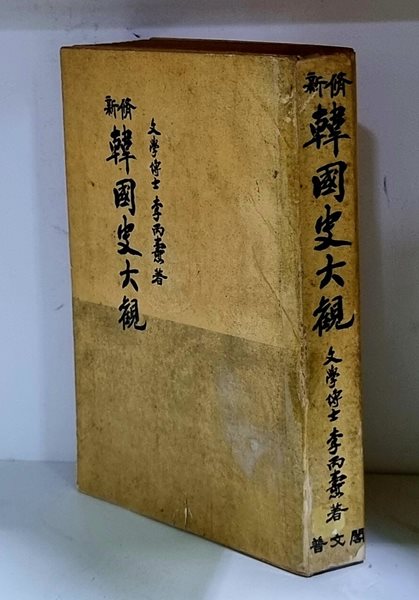 新修
韓國史大觀
文學博士 李丙燾 著
新修
韓國史大觀
文學博士 李丙燾 著
普文閣